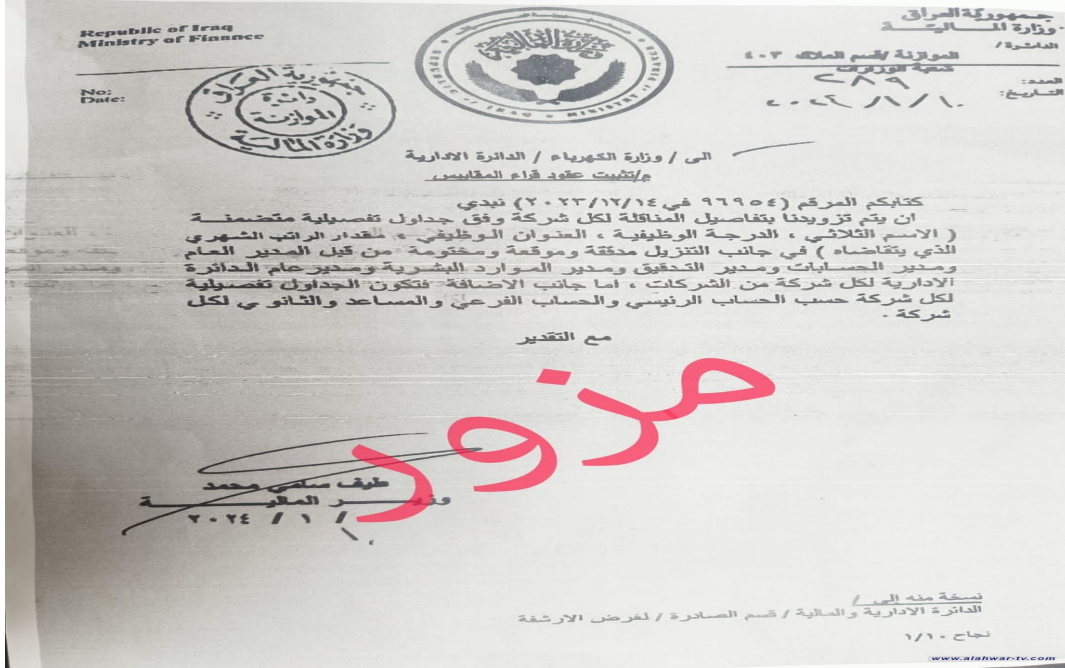 Republic of Iraq
Ministry of Finance
No:
Date:
جمهورية العراق
وزارة المالية
الدائرة/ الموازنة /قسم الملاك ٤٠٣
شعبة الوزارات
العدد: ٢٨٩
التاريخ: ٢٠٢٤/١/١٠
جمهورية العراق
دائرة
الموازنة
وزارة المالية
الى / وزارة الكهرباء / الدائرة الادارية
م/تثبيت عقود قراء المقاييس
كتابكم المرقم (٩٦٩٥٤ في ٢٠٢٣/١٢/١٤) نبدي
ان يتم تزويدنا بتفاصيل المناقلة لكل شركة وفق جداول تفصيلية متضمنة
( الاسم الثلاثي ، الدرجة الوظيفية ، العنوان الوظيفي ، مقدار الراتب الشهري
الذي يتقاضاه ) في جانب التنزيل مدققة وموقعة ومختومة من قبل المدير العام
ومدير الحسابات ومدير التدقيق ومدير الموارد البشرية ومدير عام الدائرة
الادارية لكل شركة من الشركات ، اما جانب الاضافة فتكون الجداول تفصيلية
لكل شركة حسب الحساب الرئيسي والحساب الفرعي والمساعد والثانوي لكل
شركة .
مع التقدير
مزور
طيف سامي محمد
وزير المالية
١٠ / ١ / ٢٠٢٤
نسخة منه إلى /
الدائرة الادارية والمالية / قسم الصادرة / لغرض الارشفة
نجاح ١/١٠
www.alahwar-tv.com